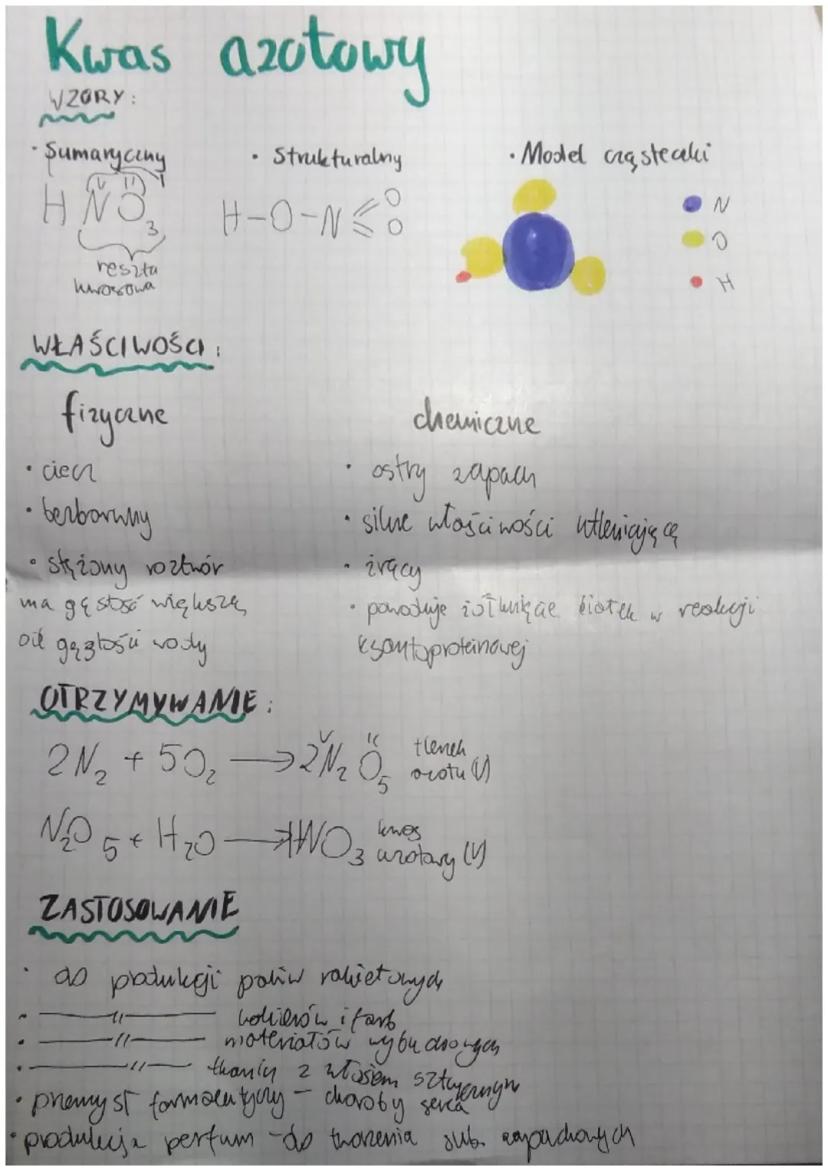 Kwas azotowy
WZORY:
• Sumaryczny
• Strukturalny
• Model cząsteczki
V II I
H N O3
reszta
kwasowa
H-O-N O O
N
O
H
WŁAŚCIWOŚCI:
fizyczne
• ciecz
• bezbarwny
• stężony roztwór
ma gęstość większą
od gęstości wody
chemiczne
• ostry zapach
• silne właściwości utleniające
• żrący
• powoduje żółknięcie białek w reakcji
ksantoproteinowej
OTRZYMYWANIE:
2N2 + 5O2 → 2N2O5 tlenek
azotu (V)
N2O5 + H2O → HNO3 kwas
azotowy (V)
ZASTOSOWANIE
• do produkcji paliw rakietowych
• —"— lakierów i farb
• —"— materiałów wybuchowych
• —"— tkanin z włosiem sztucznym
• przemysł farmaceutyczny – choroby serca
• produkcja perfum – do tworzenia sub. zapachowych